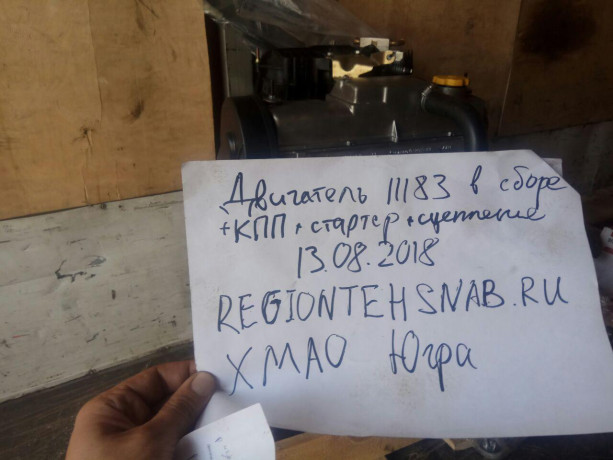 Двигатель 11183 в сборе
+КПП + стартер + сцепление
13.08.2018
REGIONTEHSNAB.RU
ХМАО Югра